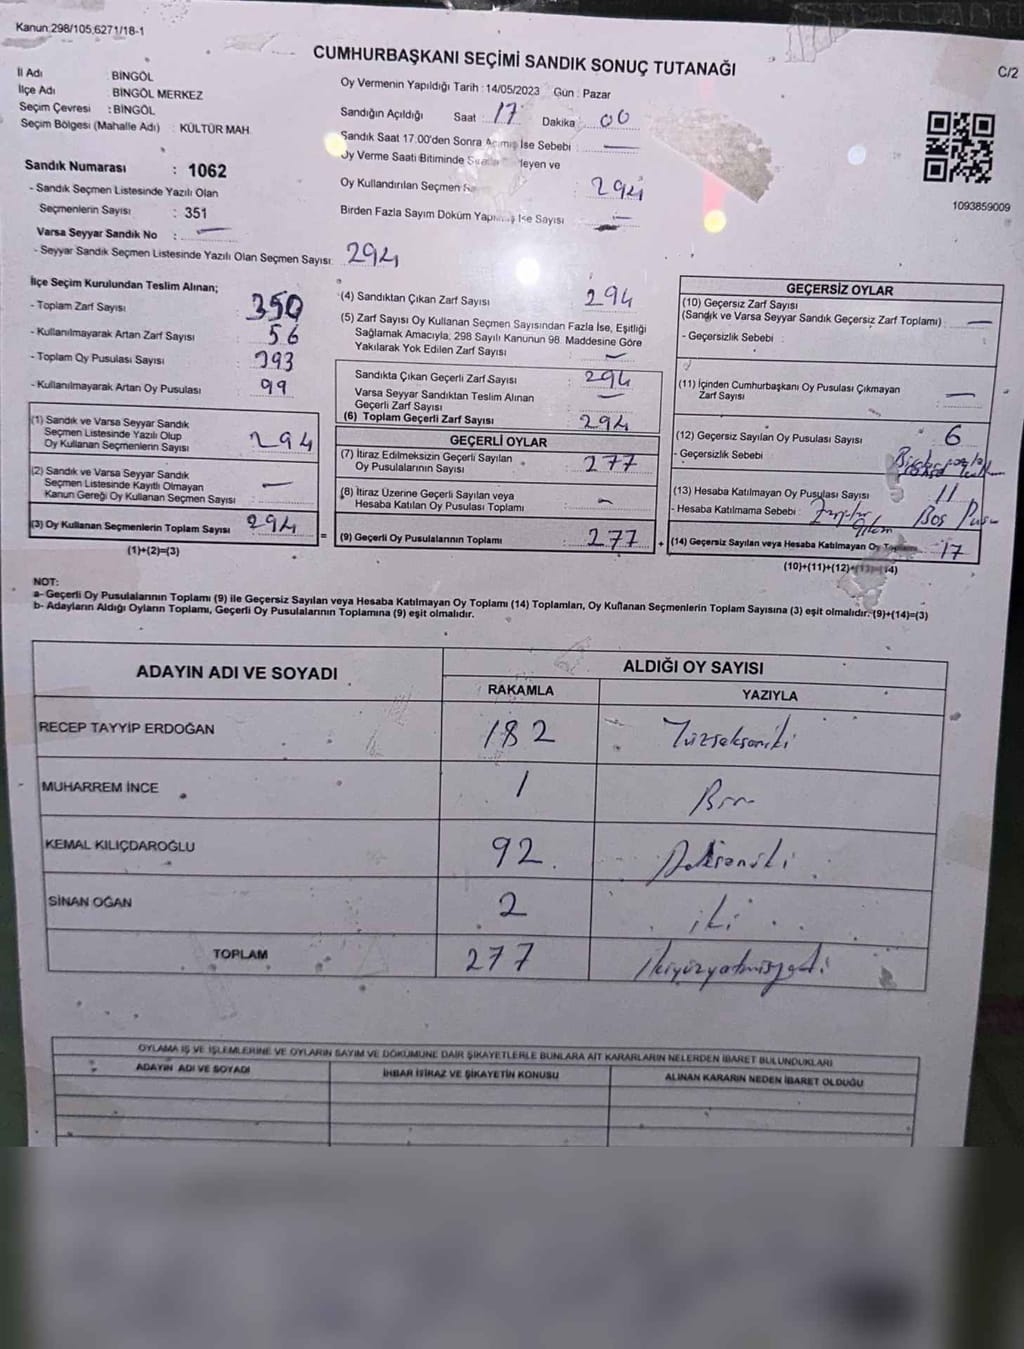 Kanun 298/105,6271/18-1
CUMHURBAŞKANI SEÇİMİ SANDIK SONUÇ TUTANAĞI
C/2
İl Adı BİNGÖL
İlçe Adı BİNGÖL MERKEZ
Seçim Çevresi : BİNGÖL
Seçim Bölgesi (Mahalle Adı) : KÜLTÜR MAH.
Oy Vermenin Yapıldığı Tarih : 14/05/2023 Gün : Pazar
Sandığın Açıldığı Saat 17 Dakika 00
Sandık Saat 17:00'den Sonra İse Sebebi
Oy Verme Saati Bitiminde
Oy Kullandırılan Seçmen 294
Birden Fazla Sayım Döküm İse Sayısı
1093859009
Sandık Numarası : 1062
- Sandık Seçmen Listesinde Yazılı Olan
Seçmenlerin Sayısı : 351
Varsa Seyyar Sandık No :
- Seyyar Sandık Seçmen Listesinde Yazılı Olan Seçmen Sayısı: 294
İlçe Seçim Kurulundan Teslim Alınan;
- Toplam Zarf Sayısı : 350
- Kullanılmayarak Artan Zarf Sayısı : 56
- Toplam Oy Pusulası Sayısı : 393
- Kullanılmayarak Artan Oy Pusulası : 99
(1) Sandık ve Varsa Seyyar Sandık
Seçmen Listesinde Yazılı Olup
Oy Kullanan Seçmenlerin Sayısı : 294
(2) Sandık ve Varsa Seyyar Sandık
Seçmen Listesinde Kayıtlı Olmayan
Kanun Gereği Oy Kullanan Seçmen Sayısı : —
(3) Oy Kullanan Seçmenlerin Toplam Sayısı 294
(1)+(2)=(3)
(4) Sandıktan Çıkan Zarf Sayısı : 294
(5) Zarf Sayısı Oy Kullanan Seçmen Sayısından Fazla İse, Eşitliği
Sağlamak Amacıyla, 298 Sayılı Kanunun 98. Maddesine Göre
Yakılarak Yok Edilen Zarf Sayısı : —
Sandıkta Çıkan Geçerli Zarf Sayısı : 294
Varsa Seyyar Sandıktan Teslim Alınan
Geçerli Zarf Sayısı : —
(6) Toplam Geçerli Zarf Sayısı : 294
GEÇERLİ OYLAR
(7) İtiraz Edilmeksizin Geçerli Sayılan
Oy Pusulalarının Sayısı : 277
(8) İtiraz Üzerine Geçerli Sayılan veya
Hesaba Katılan Oy Pusulası Toplamı : —
= (9) Geçerli Oy Pusulalarının Toplamı : 277
GEÇERSİZ OYLAR
(10) Geçersiz Zarf Sayısı
(Sandık ve Varsa Seyyar Sandık Geçersiz Zarf Toplamı) : —
- Geçersizlik Sebebi :
(11) İçinden Cumhurbaşkanı Oy Pusulası Çıkmayan
Zarf Sayısı : —
(12) Geçersiz Sayılan Oy Pusulası Sayısı : 6
- Geçersizlik Sebebi
(13) Hesaba Katılmayan Oy Pusulası Sayısı : 11
- Hesaba Katılmama Sebebi : Boş
+ (14) Geçersiz Sayılan veya Hesaba Katılmayan Oy Toplamı 17
(10)+(11)+(12)+(13)=(14)
NOT:
a- Geçerli Oy Pusulalarının Toplamı (9) ile Geçersiz Sayılan veya Hesaba Katılmayan Oy Toplamı (14) Toplamları, Oy Kullanan Seçmenlerin Toplam Sayısına (3) eşit olmalıdır. (9)+(14)=(3)
b- Adayların Aldığı Oyların Toplamı, Geçerli Oy Pusulalarının Toplamına (9) eşit olmalıdır.
ADAYIN ADI VE SOYADI ALDIĞI OY SAYISI
RAKAMLA YAZIYLA
RECEP TAYYİP ERDOĞAN 182 Yüzsekseniki
MUHARREM İNCE 1 Bir
KEMAL KILIÇDAROĞLU 92 Doksaniki
SİNAN OĞAN 2 iki
TOPLAM 277 İkiyüzyetmişyedi
OYLAMA İŞ VE İŞLEMLERİNE VE OYLARIN SAYIM VE DÖKÜMÜNE DAİR ŞİKAYETLERLE BUNLARA AİT KARARLARIN NELERDEN İBARET BULUNDUKLARI
ADAYIN ADI VE SOYADI İHBAR İTİRAZ VE ŞİKAYETİN KONUSU ALINAN KARARIN NEDEN İBARET OLDUĞU